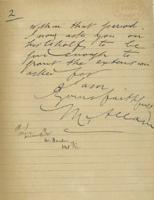 2
within that period.
I may ask you on
his behalf to be
good enough to
grant the extension
asked for
I am
Yours faithfully
McAllan